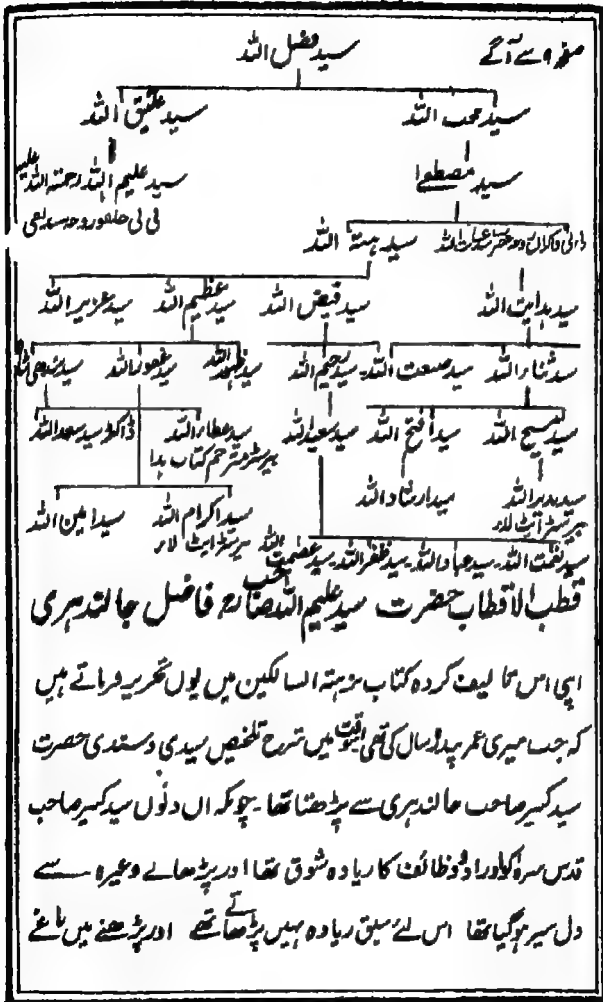 صفحہ ۹ سے آگے
سید فضل اللہ
سید محب اللہ سید عتیق اللہ
سید مصطفےٰ سید علیم اللہ رحمتہ اللہ علیہ
سید ہبتہ اللہ
سید ہدایت اللہ سید فیض اللہ سید عظیم اللہ سید عزیر اللہ
سید ثناء اللہ سید صبعت اللہ۔ سید رحیم اللہ سید ظہیر اللہ سید غفور اللہ
سید مسیح اللہ سید افتح اللہ سید سعید اللہ سید عطاء اللہ ڈاکٹر سید سعد اللہ
بیرسٹر مترجم کتاب ہذا
سید بدیر اللہ سید ارشاد اللہ سید اکرام اللہ سید امین اللہ
بیرسٹر ایٹ لاء بیرسٹر ایٹ لاء
سید نعمت اللہ۔ سید عباد اللہ۔ سید ظفر اللہ۔ سید عصمت اللہ
قطب الاقطاب حضرت سید علیم اللہ صاحب فاضل جالندہری
اپنی اس تالیف کردہ کتاب نزہتہ السالکین میں یوں تحریر فرماتے ہیں
کہ جب میری عمر پندرہ سال کی تھی اسوقت میں شرح تلخیص سیدی و سندی حضرت
سید کبیر صاحب جالندہری سے پڑھتا تھا۔ چونکہ ان دنوں سید کبیر صاحب
قدس سرہ کو اوراد و وظائف کا زیادہ شوق تھا اور پڑھانے وغیرہ سے
دل سیر ہو گیا تھا اس لئے سبق زیادہ نہیں پڑھاتے تھے اور پڑھنے میں ناغے